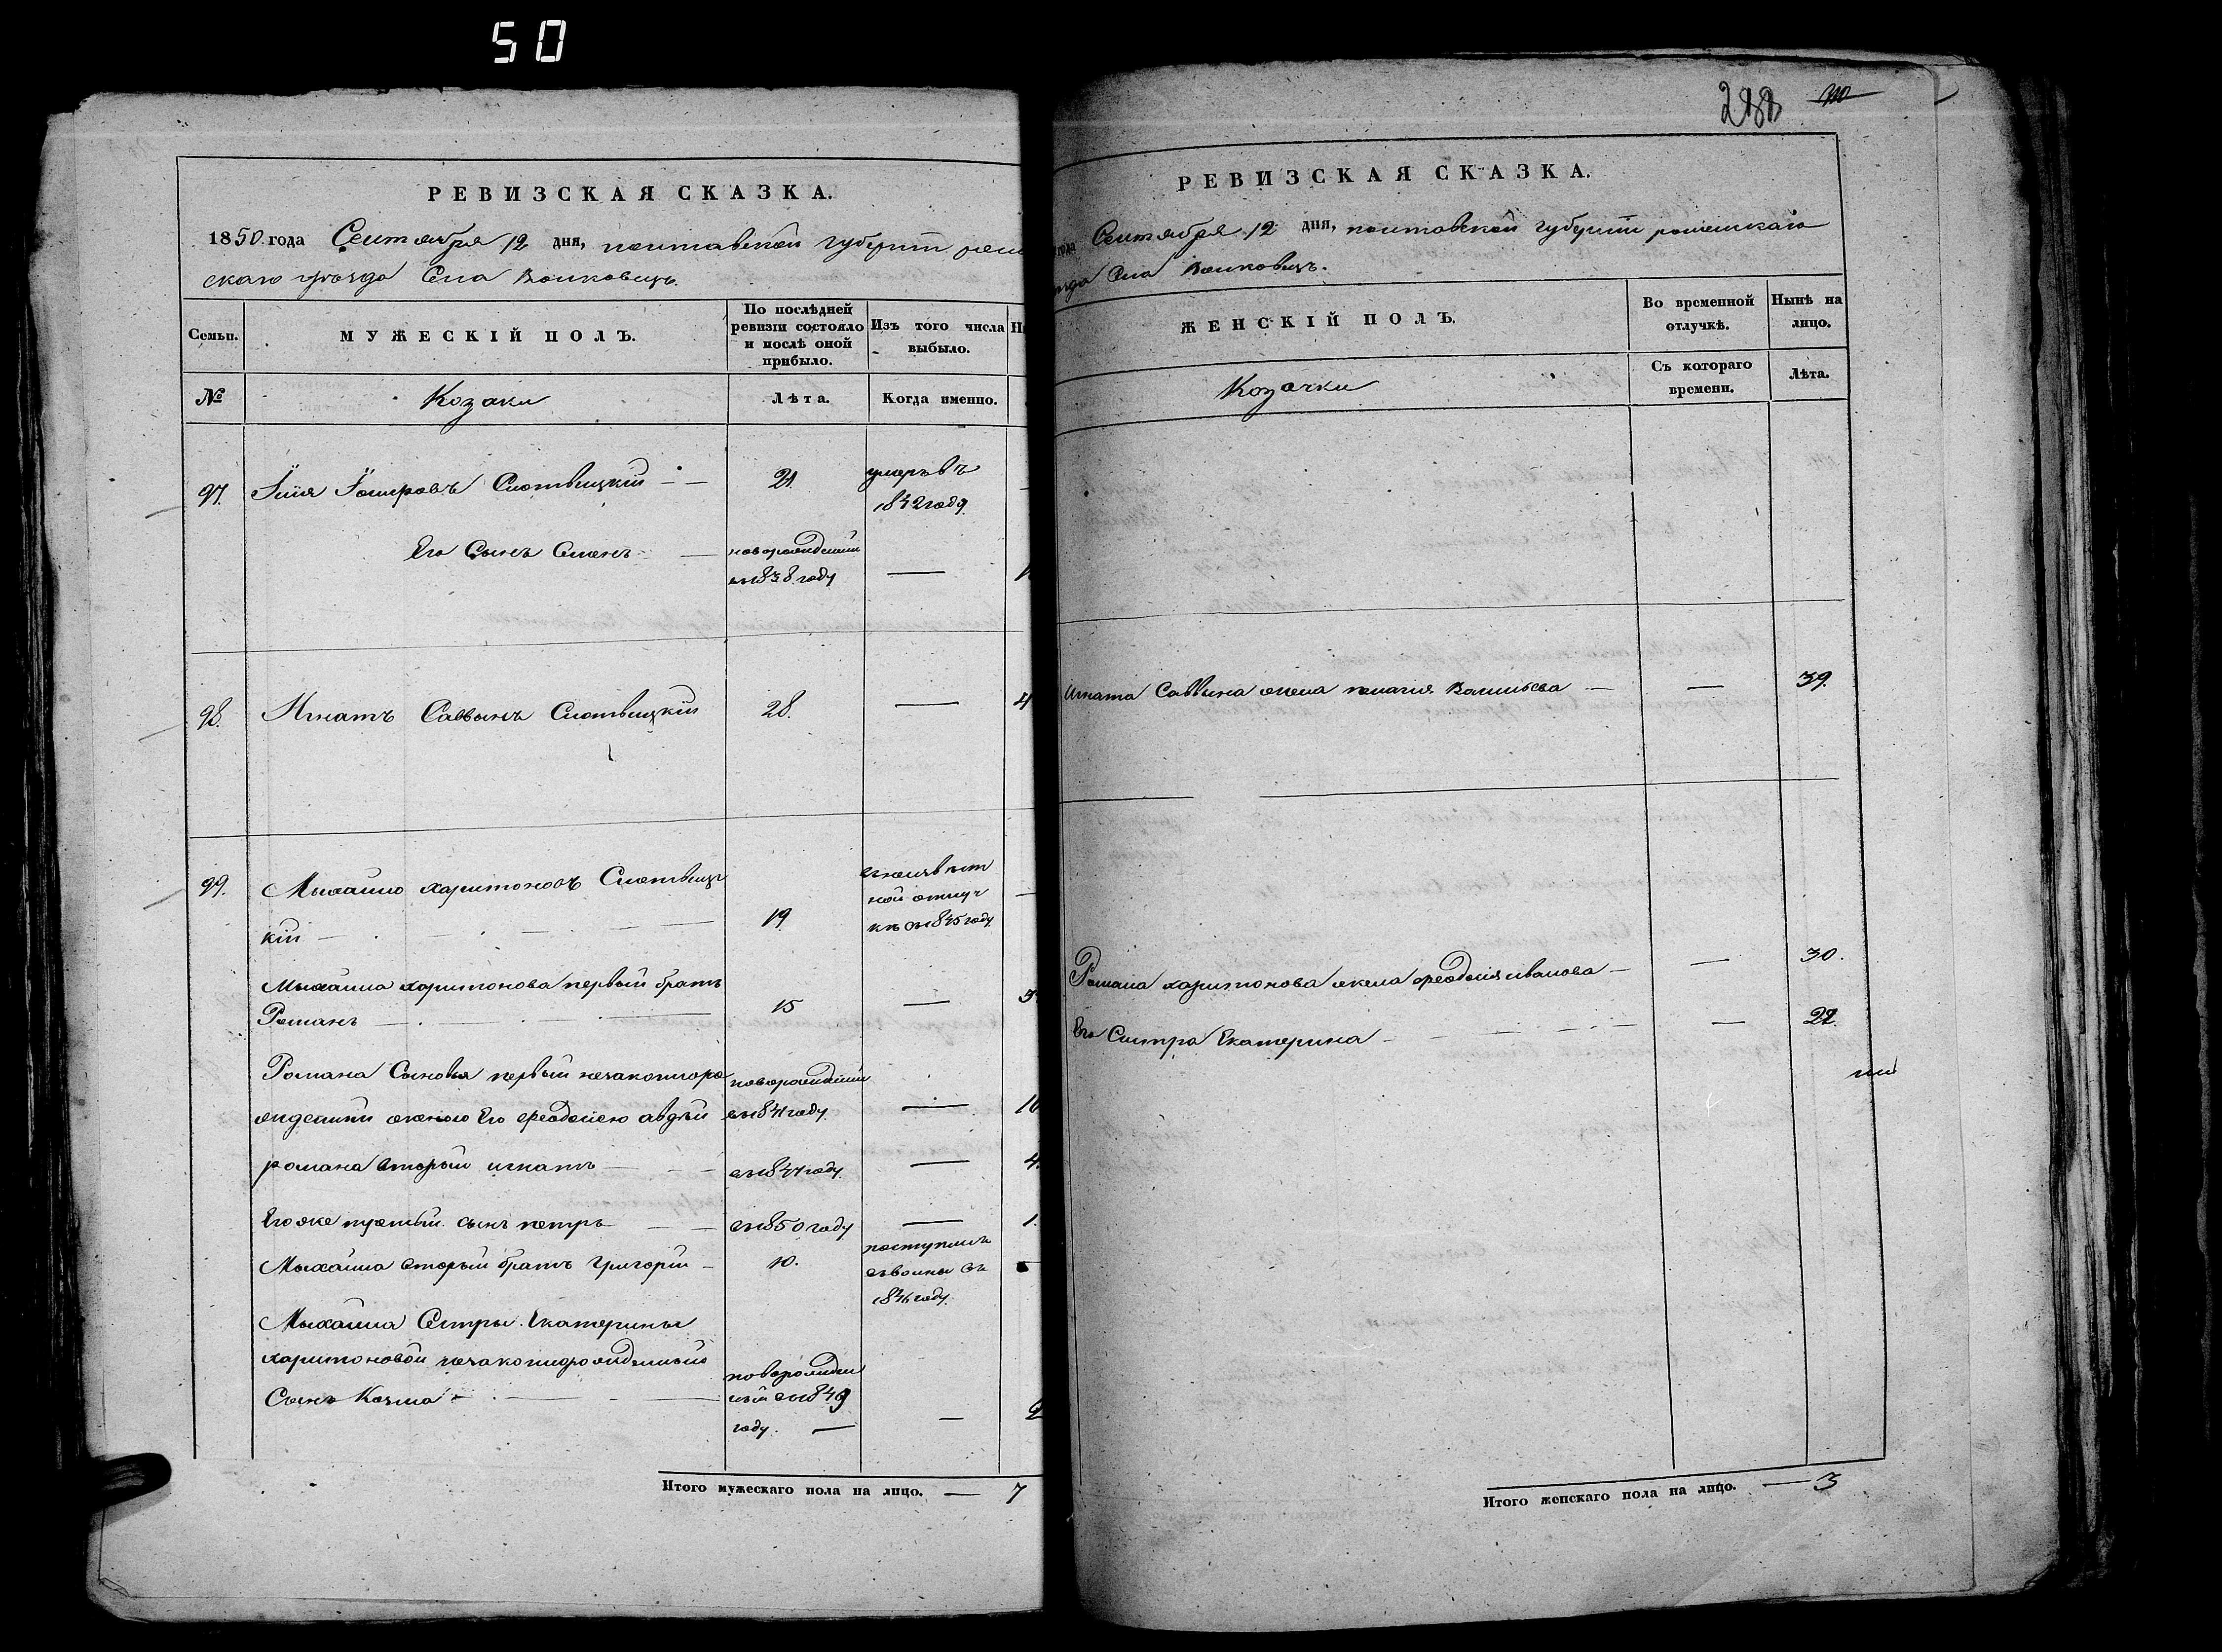 50
РЕВИЗСКАЯ СКАЗКА.
1850 года Сентября 12 дня, полтавской губернiи
скаго уѣзда Села
Семьи.
МУЖЕСКІЙ ПОЛЪ.
По послѣдней ревизіи состояло и послѣ оной прибыло.
Изъ того числа выбыло.
№
Козаки
Лѣта.
Когда именно.
97. Слотвицкій 21. умеръ въ
1842 году
Его Сынъ Семенъ новорожденный
въ 1838 году
98. Игнатъ Саввинъ Слотвицкій 28. 4
99. Михайло харитоновъ Слотвиц
кій 19 в неизвѣст
ной отлуч
кѣ съ 1845 году
Михайла харитонова первый братъ
Романъ 15
Романа Сыновья первый незаконноро новорожденный
жденный женою Его феодосіею авдѣй въ 1841 году
романа второй игнатъ въ 1847 году 4.
Его же третьий сынъ петръ въ 1850 году 1.
Михайла второй братъ Григорій 10. поступилъ
въ 1846 году
Михайла Сестры Екатерины
харитоновой незаконнорожденный
Сынъ Козма новорожден
ный въ 1849
году.
Итого мужескаго пола на лицо. 7
288
РЕВИЗСКАЯ СКАЗКА.
года Сентября 12 дня, полтавской губернiи роменскаго
Села
ЖЕНСКІЙ ПОЛЪ.
Во временной отлучкѣ.
Нынѣ на лицо.
Козачки
Съ котораго времени.
Лѣта.
Игната Саввина жена пелагия Васильева 39.
Романа харитонова жена феодосія иванова 30.
Его Систра Екатерина 22.
Итого женскаго пола на лицо. 3